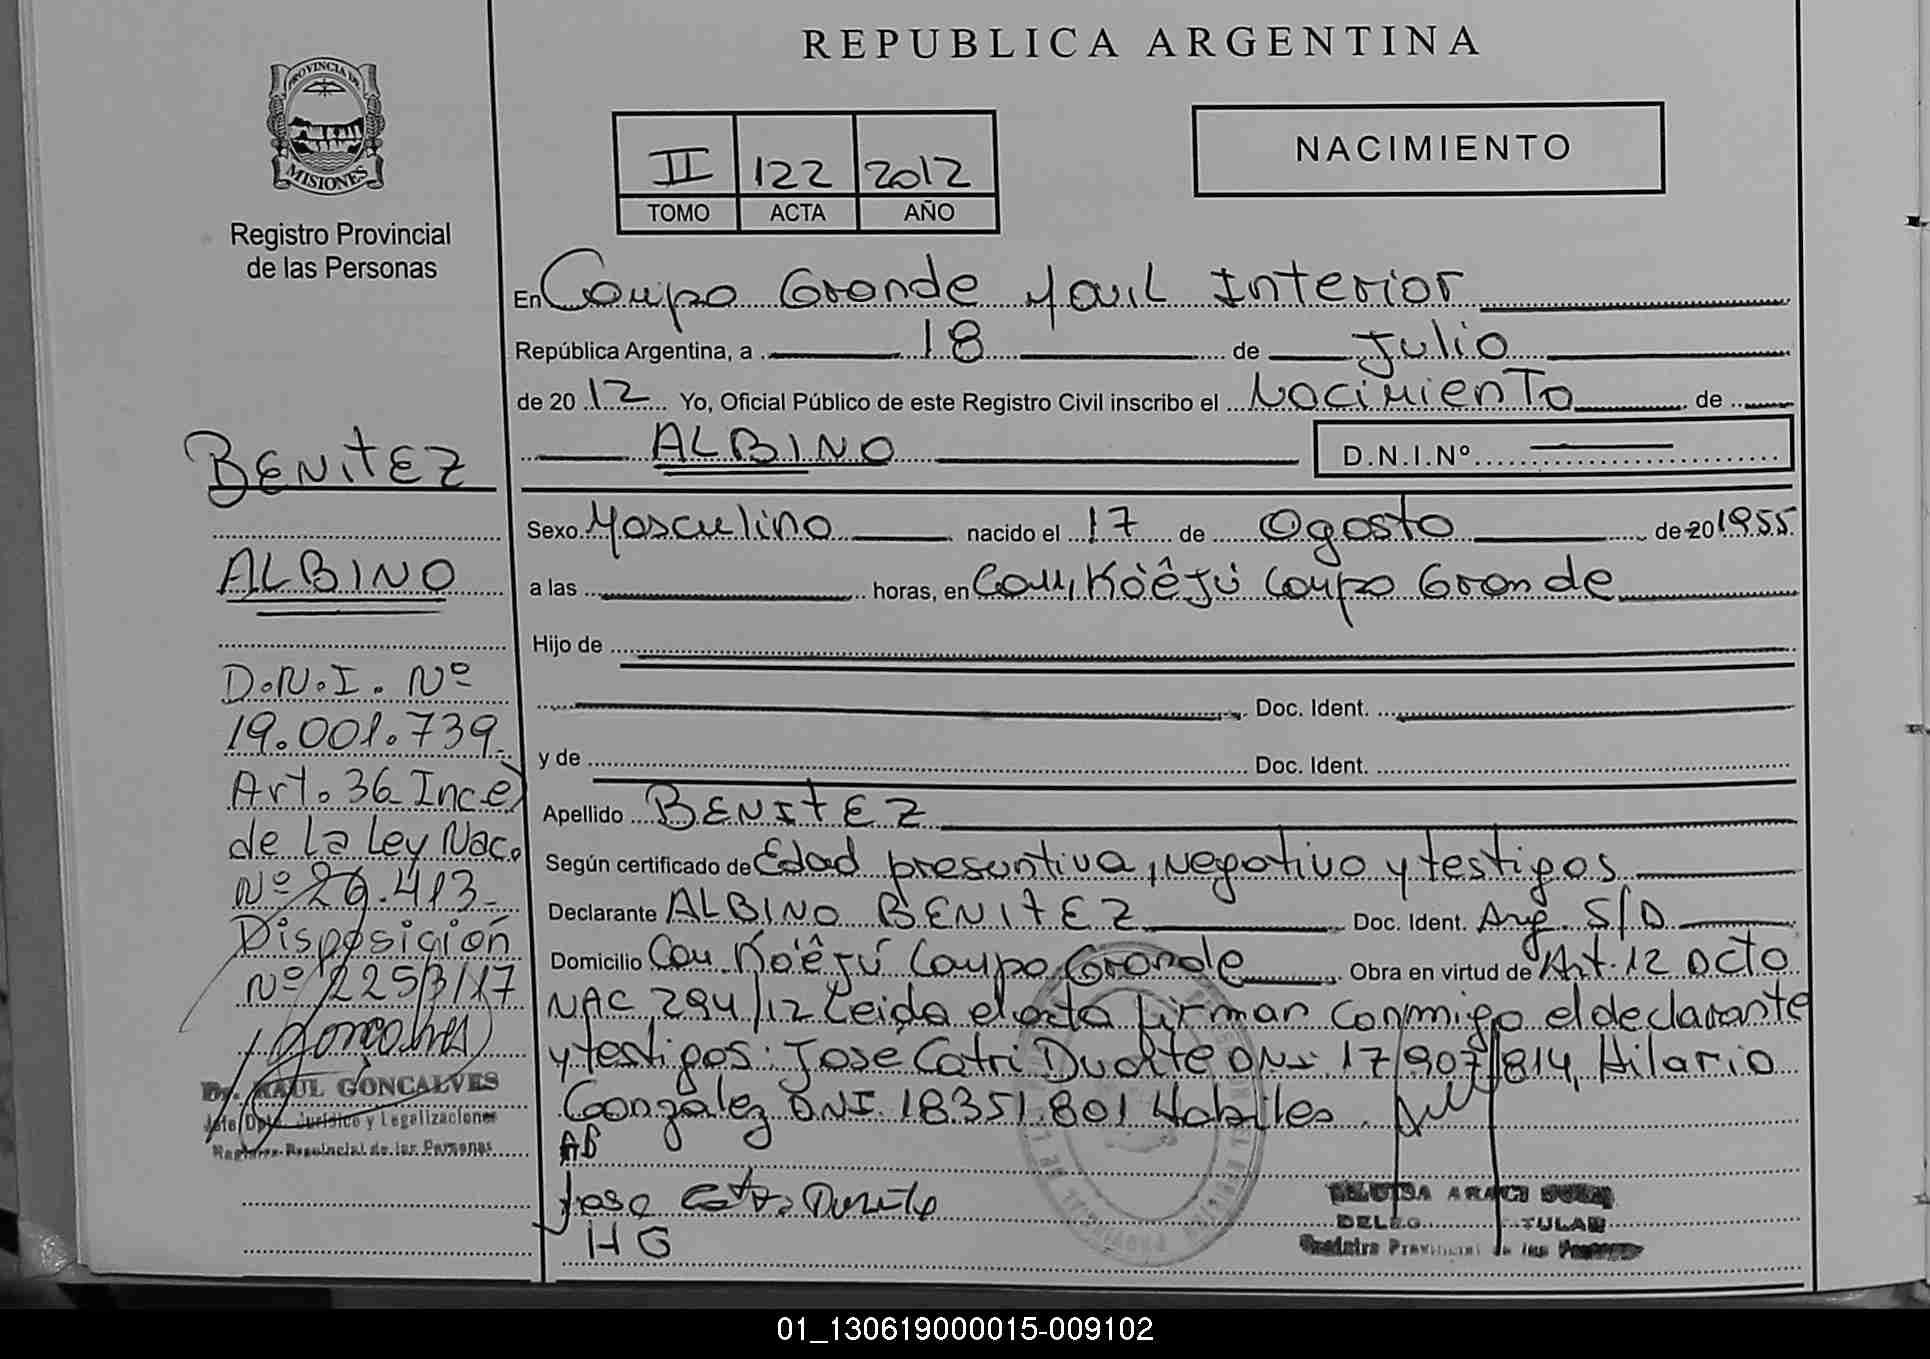 REPUBLICA ARGENTINA
PROVINCIA DE
MISIONES
Registro Provincial
de las Personas
NACIMIENTO
II 122 2012
TOMO ACTA AÑO
En Campo Grande Movil Interior
República Argentina, a 18 de Julio
de 2012 Yo, Oficial Público de este Registro Civil inscribo el Nacimiento de
ALBINO D.N.I.Nº
Sexo Masculino nacido el 17 de Agosto de 20 1955
a las horas, en Com. Ko'êjú Campo Grande
Hijo de
Doc. Ident.
y de Doc. Ident.
Apellido BENITEZ
Según certificado de Edad presuntiva, negativo y testigos
Declarante ALBINO BENITEZ Doc. Ident. Arg. S/D
Domicilio Com. Ko'êjú Campo Grande Obra en virtud de Art. 12 Dcto
NAC 294/12 Leida el acta firman conmigo el declarante
y testigos: Jose Catri Duarte DNI 17.907.814, Hilario
Gonzalez DNI 18.351.801 Habiles.
AB
Jose Catri Duarte
HG
ARACI
DELEG TULAR
Registro Provincial de las Personas
BENITEZ
ALBINO
D.N.I. Nº
19.001.739
Art. 36 Inc e)
de la Ley Nac.
Nº 26.413
Disposición
Nº 2253/17
Dr. RAUL GONCALVES
Jefe Dpto. Jurídico y Legalizaciones
Registro Provincial de las Personas
01_130619000015-009102